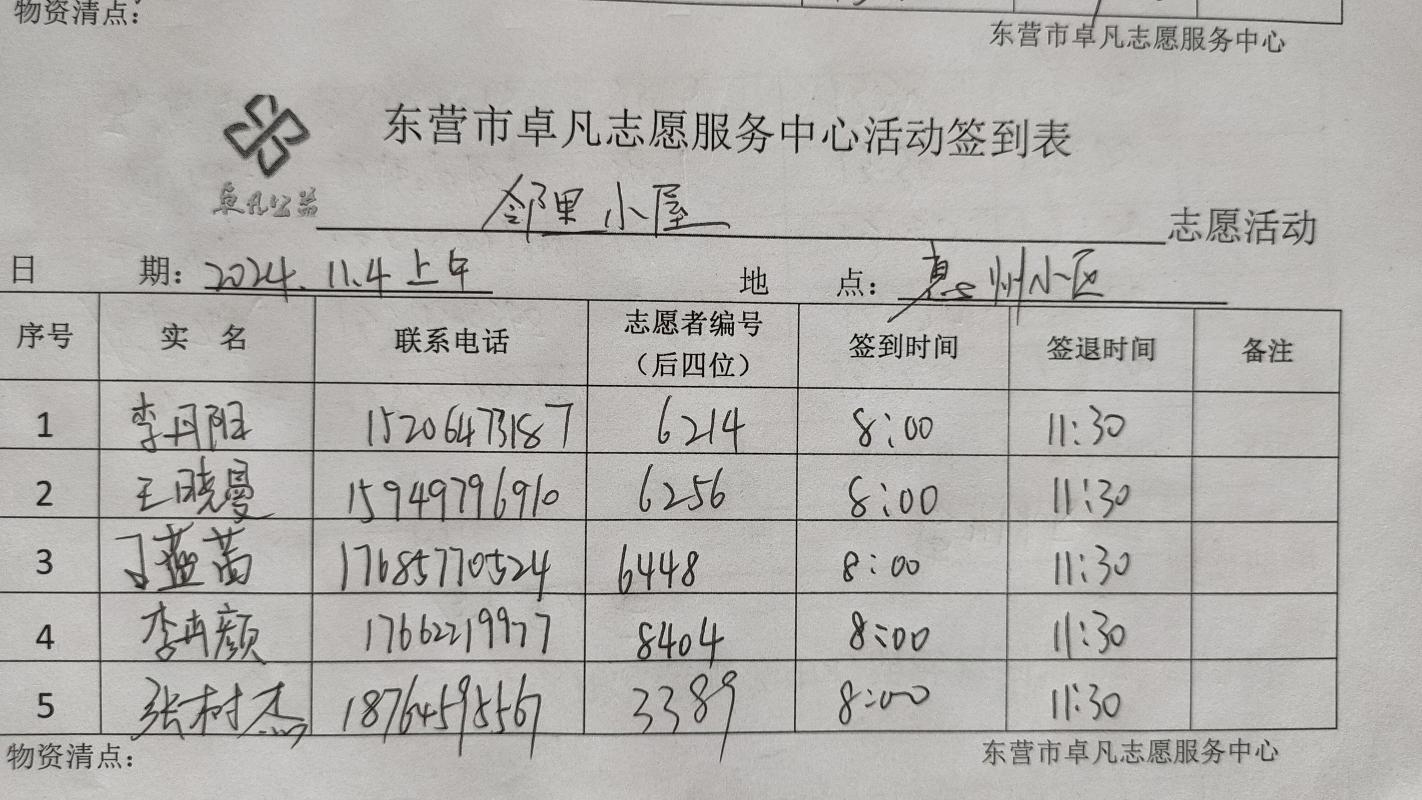 物资清点：
东营市卓凡志愿服务中心
东营市卓凡志愿服务中心活动签到表
卓凡公益
邻里小屋 志愿活动
日 期：2024.11.4上午 地 点：惠州小区
序号 实 名 联系电话 志愿者编号（后四位） 签到时间 签退时间 备注
1 李丹阳 15206473187 6214 8:00 11:30
2 王晓曼 15949796910 6256 8:00 11:30
3 丁蓝茜 17685770524 6448 8:00 11:30
4 李冉颜 17662219977 8404 8:00 11:30
5 张树杰 18764595567 3389 8:00 11:30
物资清点：
东营市卓凡志愿服务中心